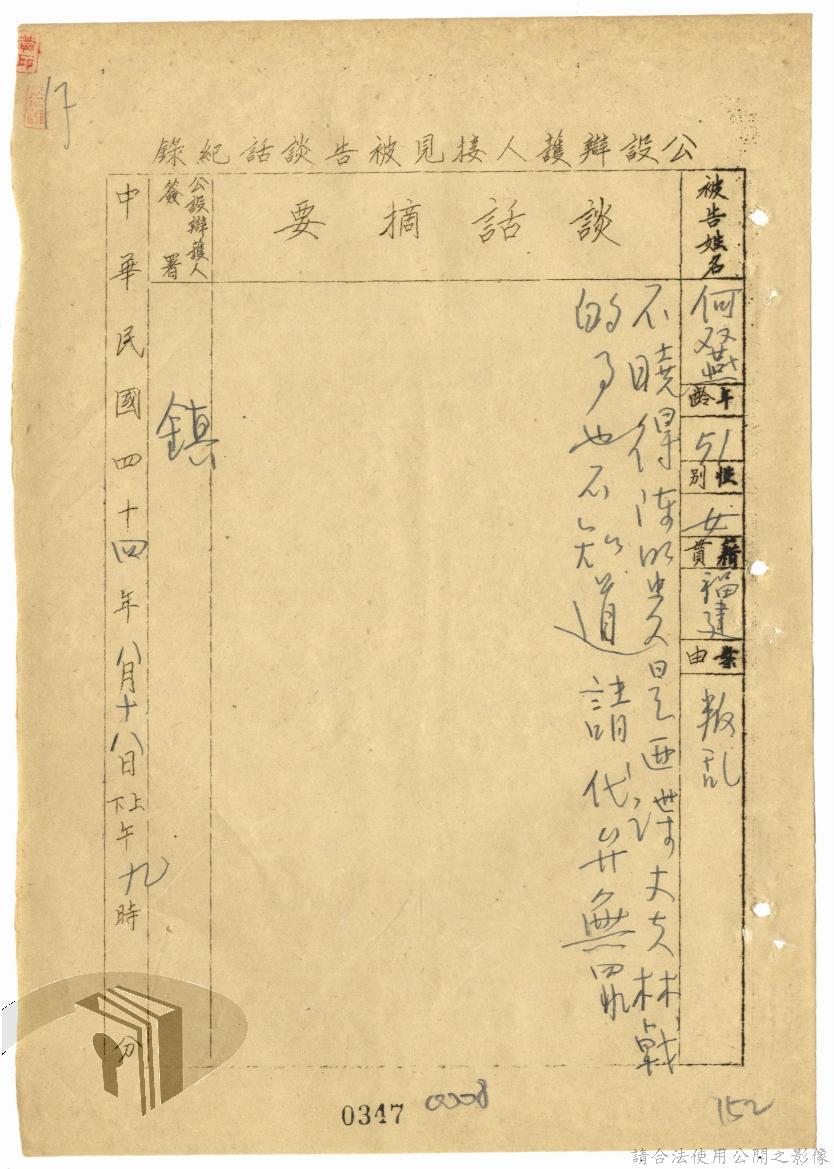 公設辯護人接見被告談話紀錄
被告姓名
何双燕
年齡
51
性別
女
籍貫
福建
案由
叛乱
談話摘要
不曉得陳明忠是匪諜丈夫林戟
的事也不知道請代并無罪
公設辯護人
簽署
鎮
中華民國四十四年八月十八日上下午九時 分
0347
0008
152
請合法使用公開之影像